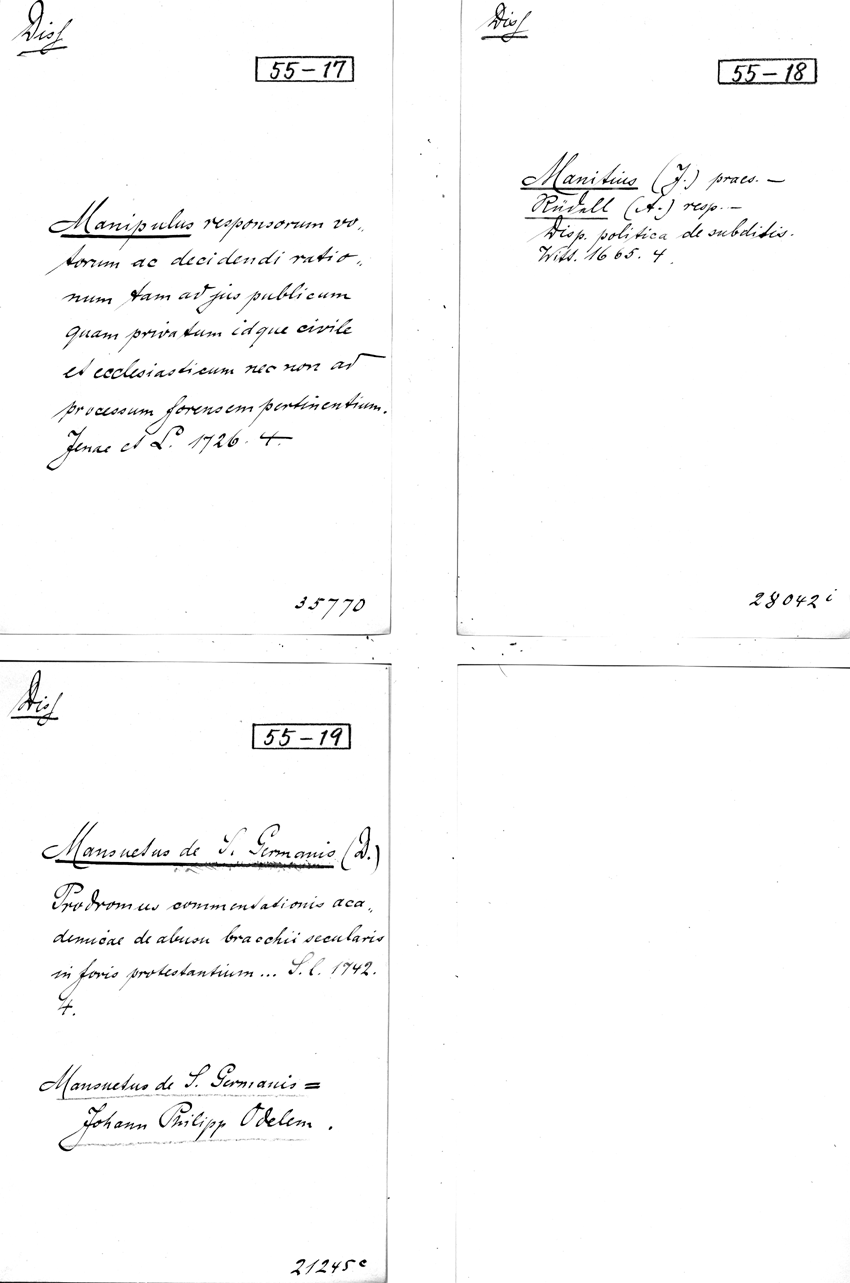 Diss
55-17
Manipulus responsorum vo„
torum ac decidendi ratio„
num tam ad jus publicum
quam privatum idque civile
et ecclesiasticum nec non ad
processum forensem pertinentium.
Jenae et L. 1726. 4.
35770
Diss
55-18
Manitius (J.) praes. —
Rüdell (A.) resp. —
Disp. politica de subditis.
Witt. 1665. 4.
28042 i
Diss
55-19
Mansuetus de S. Germanis (D.)
Prodromus commentationis aca„
demicae de abusu bracchii secularis
in foris protestantium... S. l. 1742.
4.
Mansuetus de S. Germanis =
Johann Philipp Odelem.
21245 e